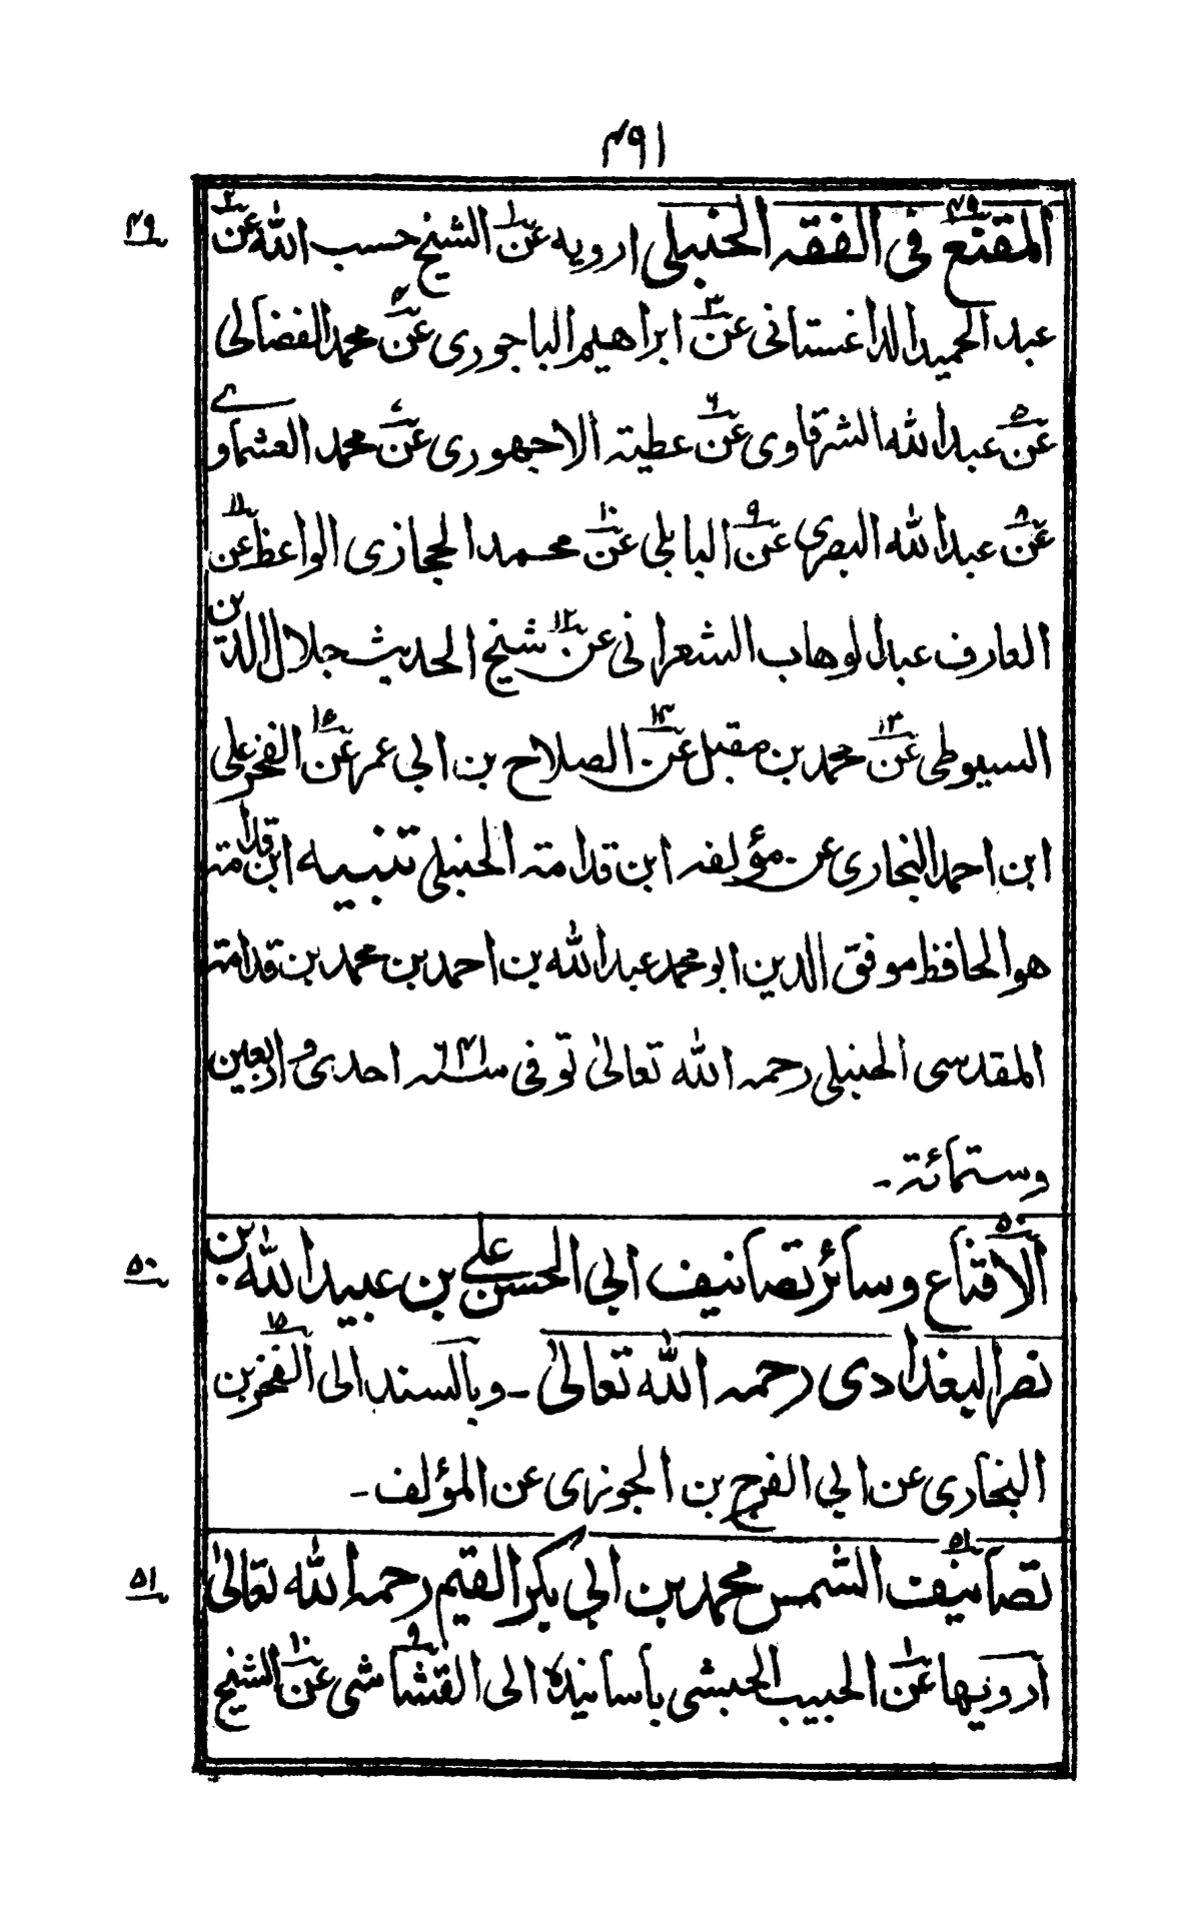 ۴۹۱
۴۹
المقنع في الفقه الحنبلي ارويه عن۱ الشيخ حسب الله عن۲
عبد الحميد الداغستاني عن۳ ابراهيم الباجوري عن۴ محمد الفضالي
عن۵ عبد الله الشرقاوي عن۶ عطية الاجهوري عن۷ محمد العشماوي
عن۸ عبد الله البصري عن۹ البابلي عن۱۰ محمد الحجازي الواعظ عن۱۱
العارف عبد الوهاب الشعراني عن۱۲ شيخ الحديث جلال الدين
السيوطي عن۱۳ محمد بن مقبل عن۱۴ الصلاح بن ابي عمر عن الفخر علي
ابن احمد البخاري عن مؤلفه ابن قدامة الحنبلي تنبيه ابن قدامة
هو الحافظ موفق الدين ابو محمد عبد الله بن احمد بن محمد بن قدامة
المقدسي الحنبلي رحمه الله تعالیٰ توفي سنة ۶۴۱ احدى و اربعين
وستمائة ـ
۵۰
الاقناع وسائر تصانيف ابي الحسن علي بن عبيد الله بن
نصر البغدادي رحمه الله تعالیٰ ـ وبالسند الى الفخر۱۵ بن
البخاري عن ابي الفرج بن الجوزي عن المؤلف ـ
۵۱
تصانيف الشمس محمد بن ابي بكر القيم رحمه الله تعالیٰ
ارويها عن۱ الحبيب الحبشي باسانيده الى القشاشي۹ عن۱۰ الشيخ